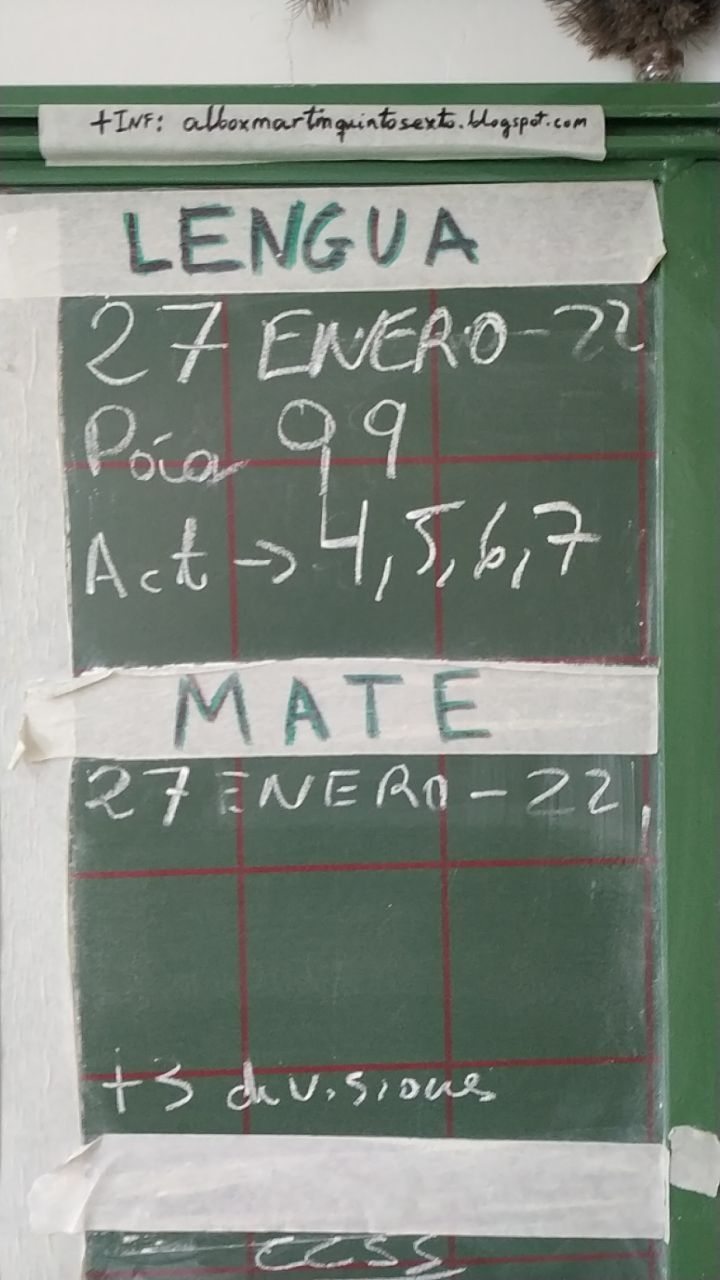 +INF: alboxmartinquintosexto.blogspot.com
LENGUA
27 ENERO-22
Póia 99
Act → 4,5,6,7
MATE
27 ENERO-22
+3 divisiones
CCSS